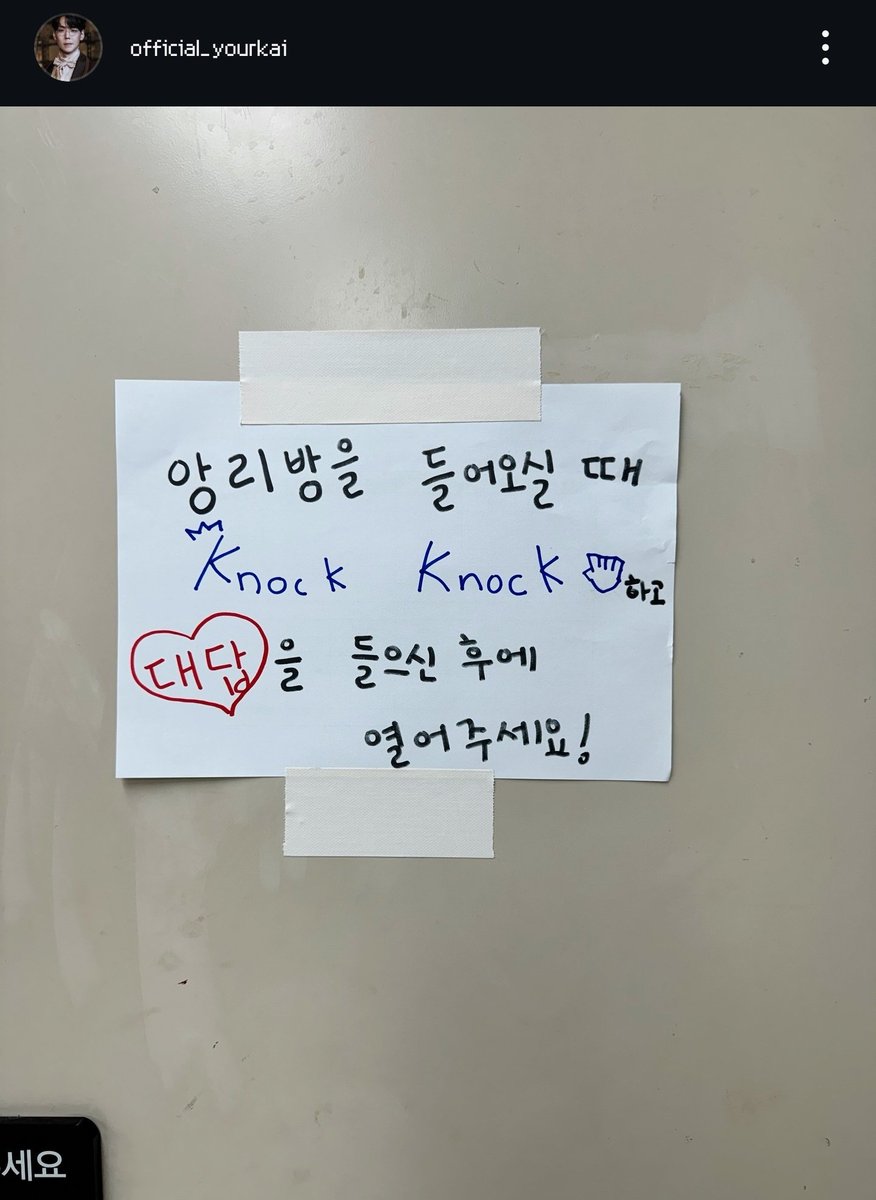 official_yourkai
앙리방을 들어오실 때
Knock Knock 하고
대답을 들으신 후에
열어주세요!
세요